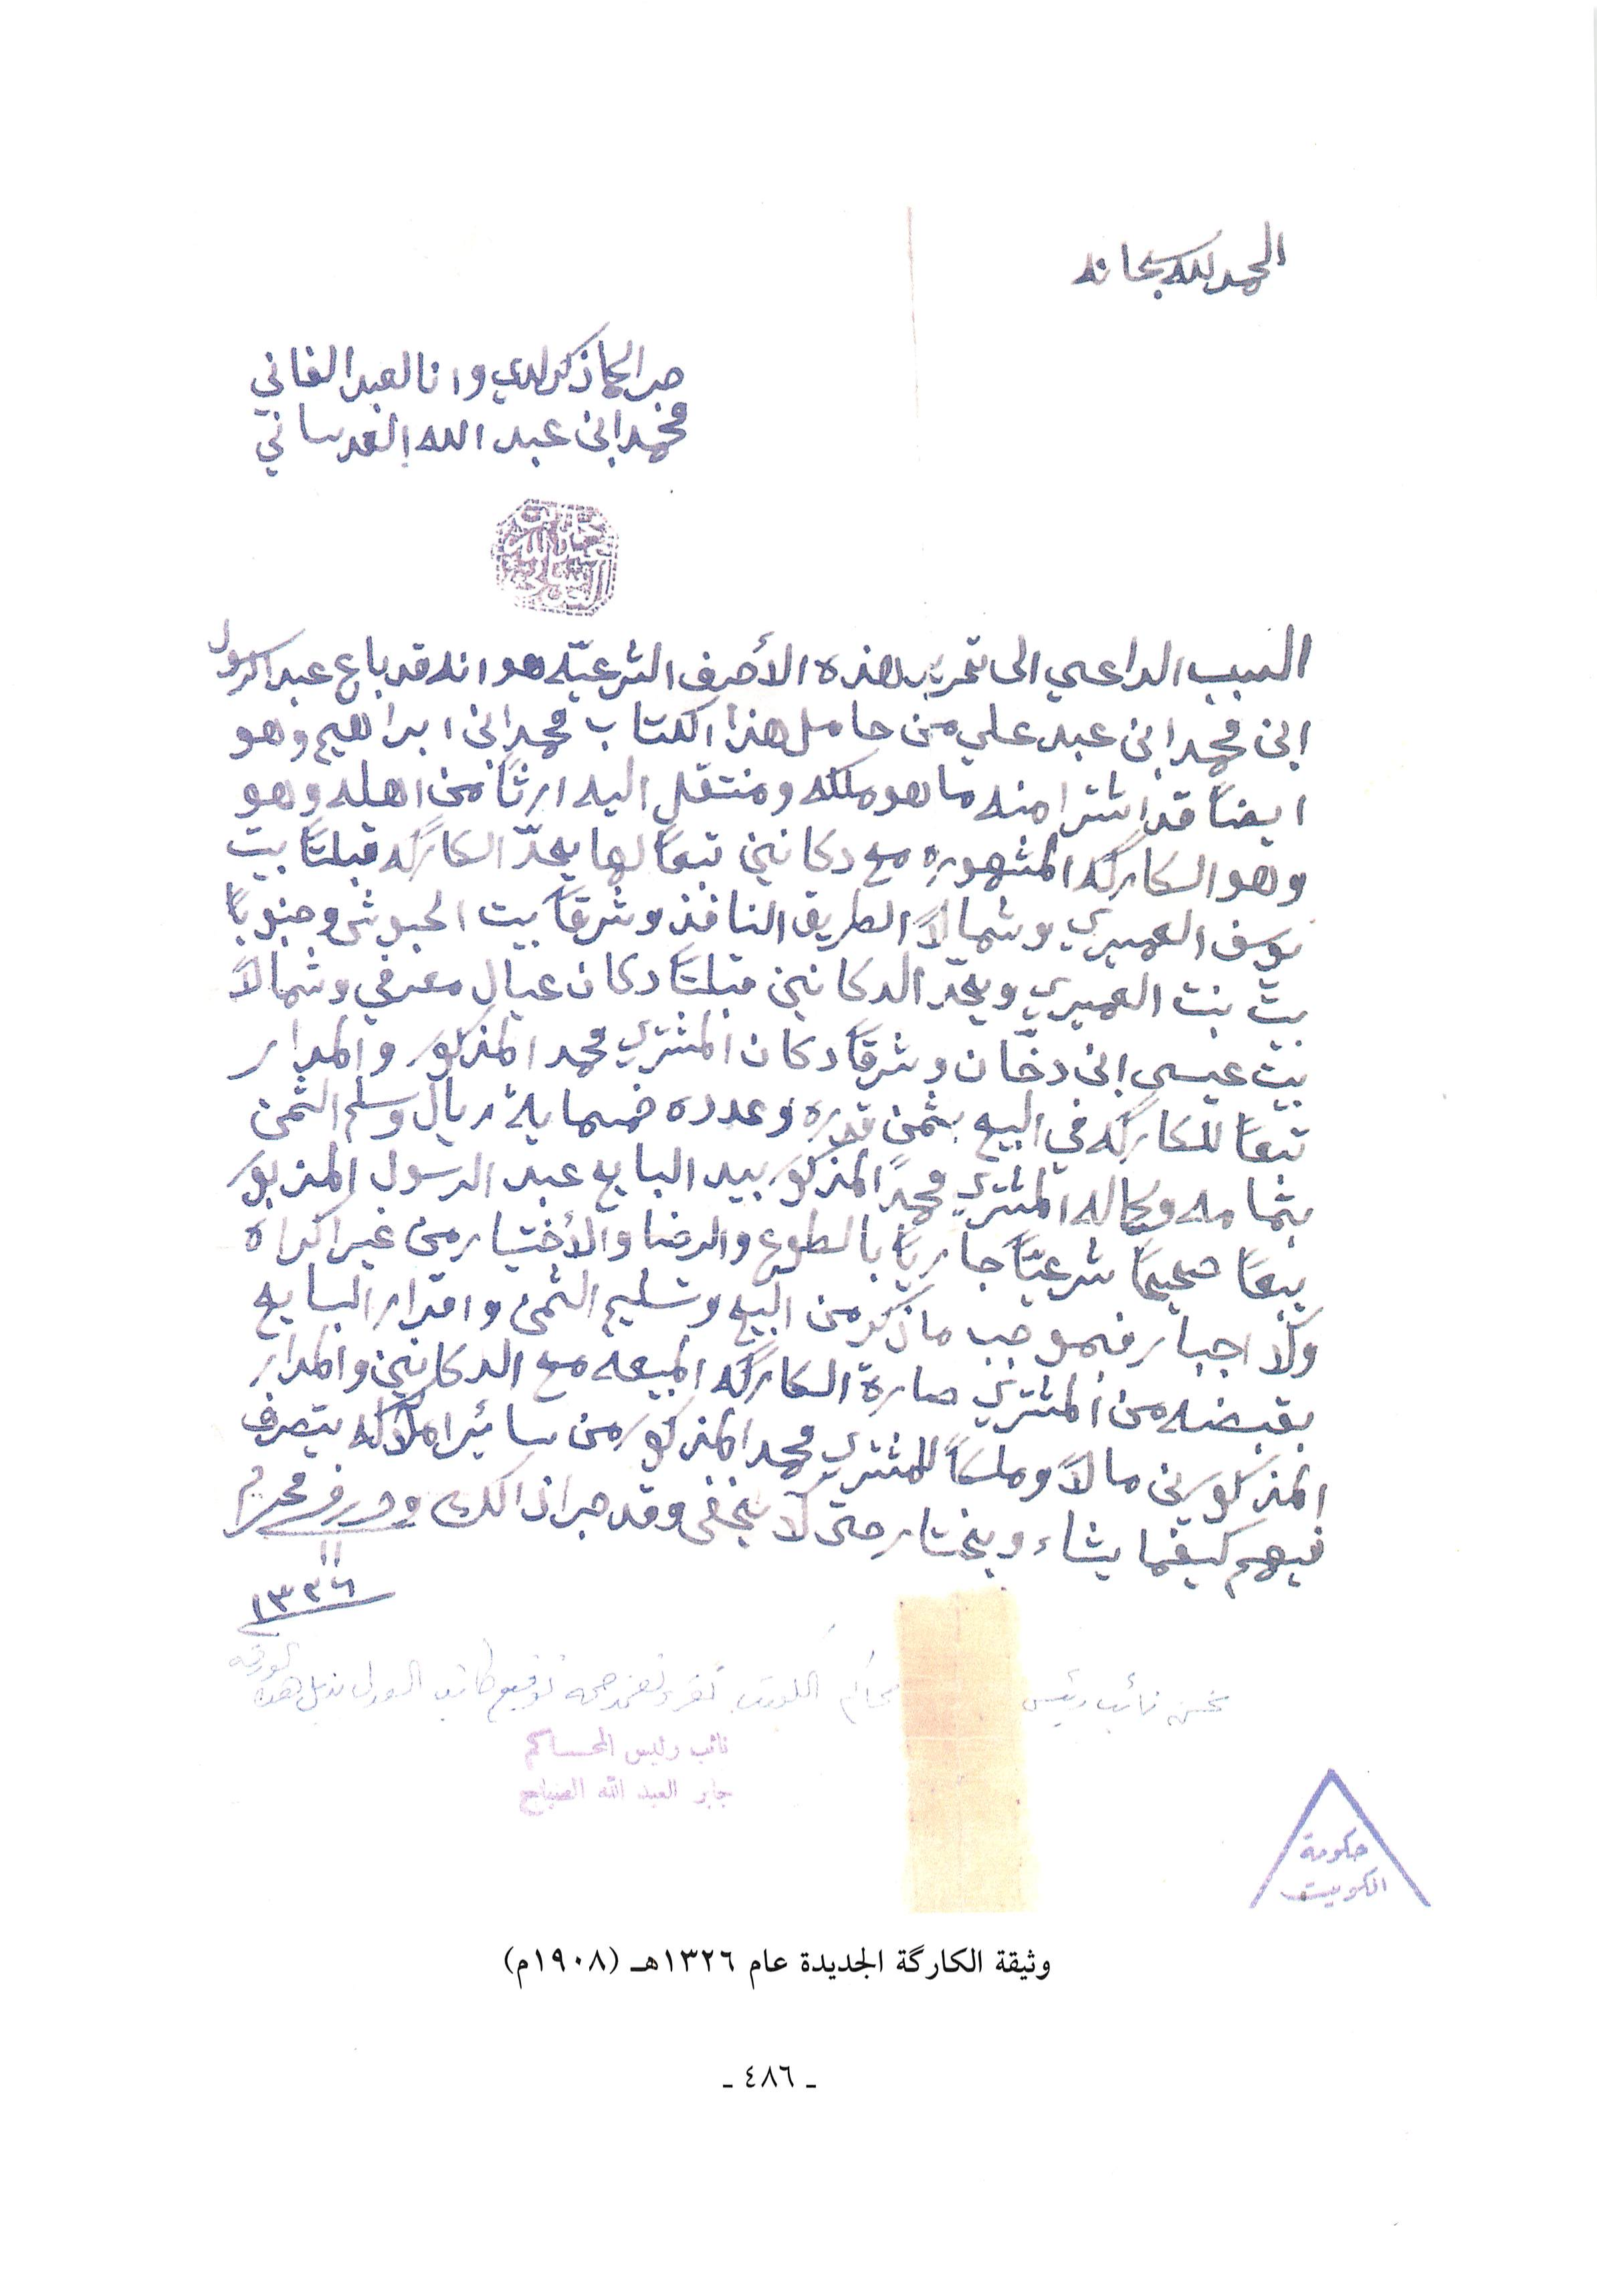 الحمد لله سبحانه
جرا لما ذكر لدي وانا العبد الفاني
محمد ابن عبد الله العدساني
السبب الداعي الى تحرير هذه الأحرف الشرعيّه هو انه قد باع عبد الرسول
ابن محمد ابن عبد علي من حامل هذا الكتاب محمد ابن ابراهيم وهو
ايضاً قد اشترا منه ما هو ملكه ومنتقل اليه ارثاً من اهله وهو
وهو الكارگه المشهوره مع دكانين تبعاً لها يحدّ الكارگه قبلتاً بيت
يوسف العميري وشمالاً الطريق النافذ وشرقاً بيت الحبوش وجنوباً
بيت بنت العميري ويحدّ الدكانين قبلتاً دكان عيال معرفي وشمالاً
بيت عيسى ابن دخّان وشرقاً دكان المشتري محمد المذكور والمدار
تبعاً للكارگه في البيع بثمن قدره وعدده خمسماية ريال وسلم الثمن
بتمامه وكماله المشتري محمدً المذكور بيد البايع عبد الرسول المزبور
بيعاً صحيحاً شرعيّاً جارياً بالطوع والرضا والأختيار من غير اكراه
ولا اجبار فبموجب ما ذكر من البيع وتسليم الثمن واقرار البايع
بقبضه من المشتري صارة الكارگه المبيعه مع الدكانين والمدار
المذكورين مالاً وملكاً للمشتري محمد المذكور من سائر املاكه يتصرف
فيهم كيفما يشاء ويختار حتى لا يخفى وقد جرا ذالك وحرر في محرم
١١
١٣٢٦
نحن نائب رئيس محاكم الكويت نقر ونعتمد صحة توقيع كاتب العدل بذيل هذه الورقة
نائب رئيس المحاكم
جابر العبد الله الصباح
حكومة
الكويت
وثيقة الكارگة الجديدة عام ١٣٢٦هـ (١٩٠٨م)
ـ ٤٨٦ ـ